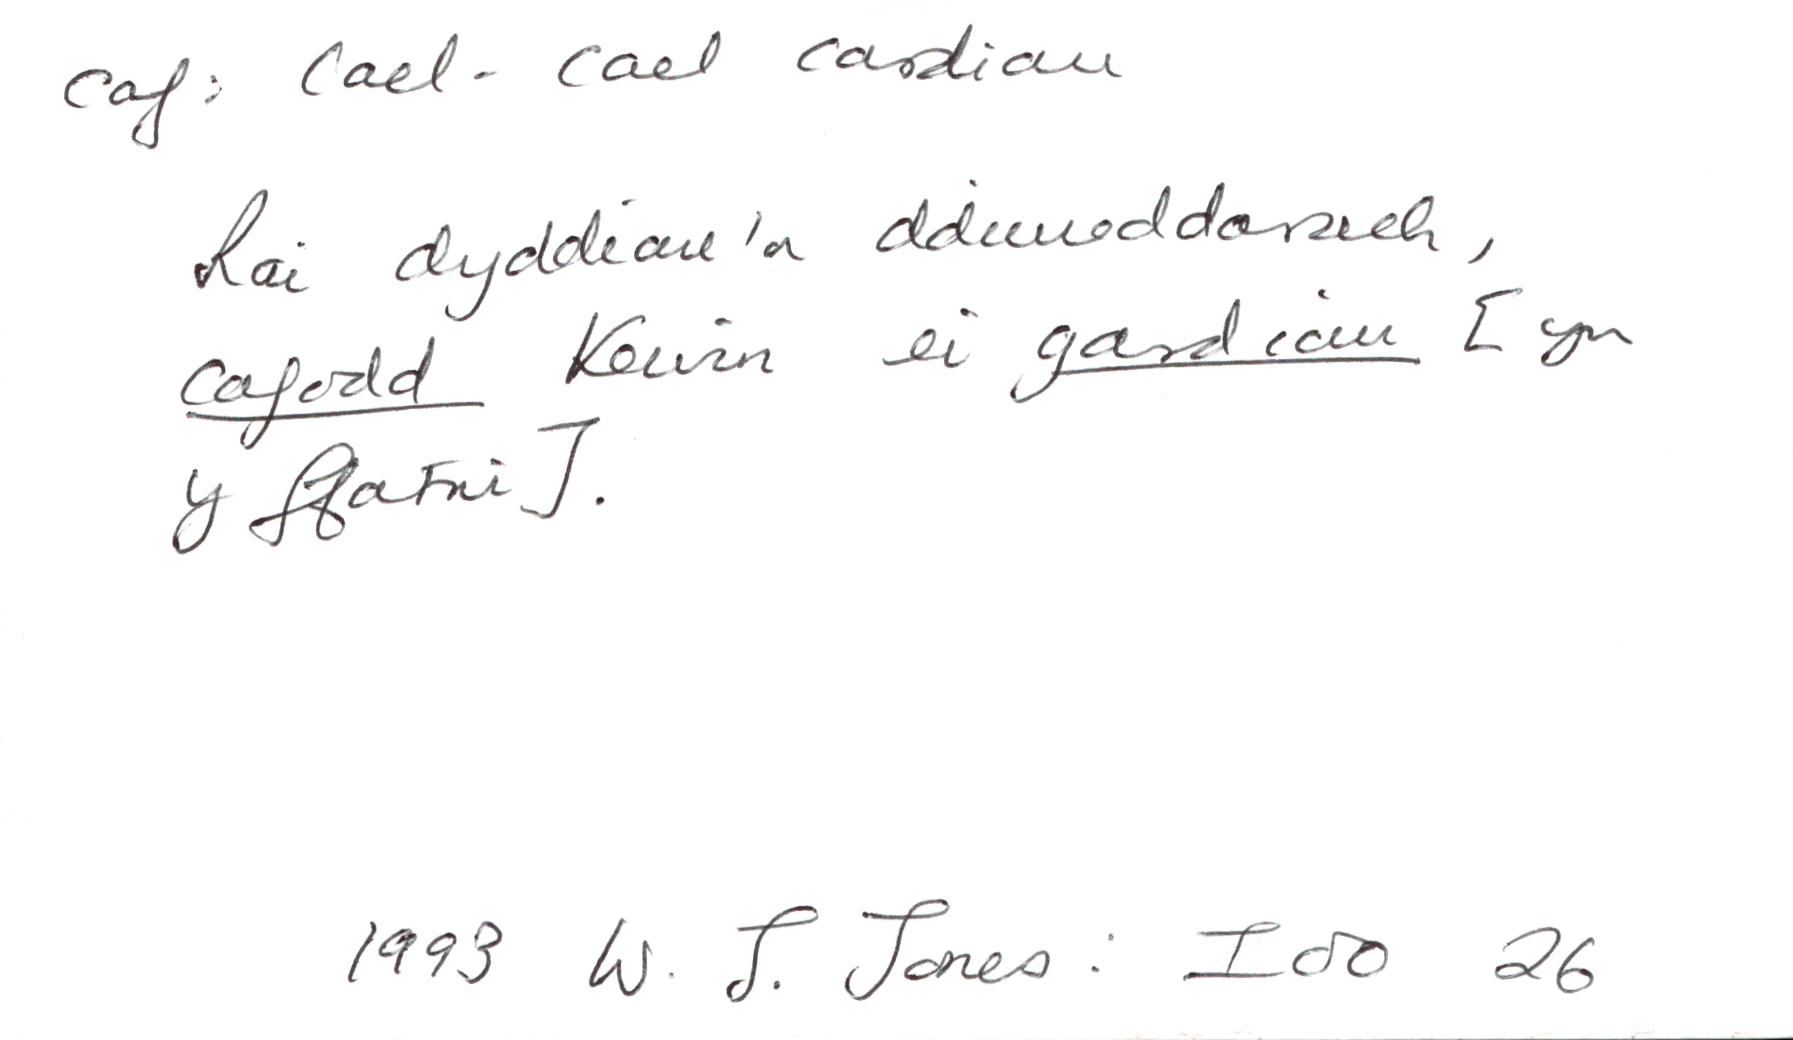 caf: Cael - cael cardiau
Rai dyddiau'n ddiweddarach,
cafodd Kevin ei gardiau [yn
y ffatri].
1993 W. J. Jones: IOO 26